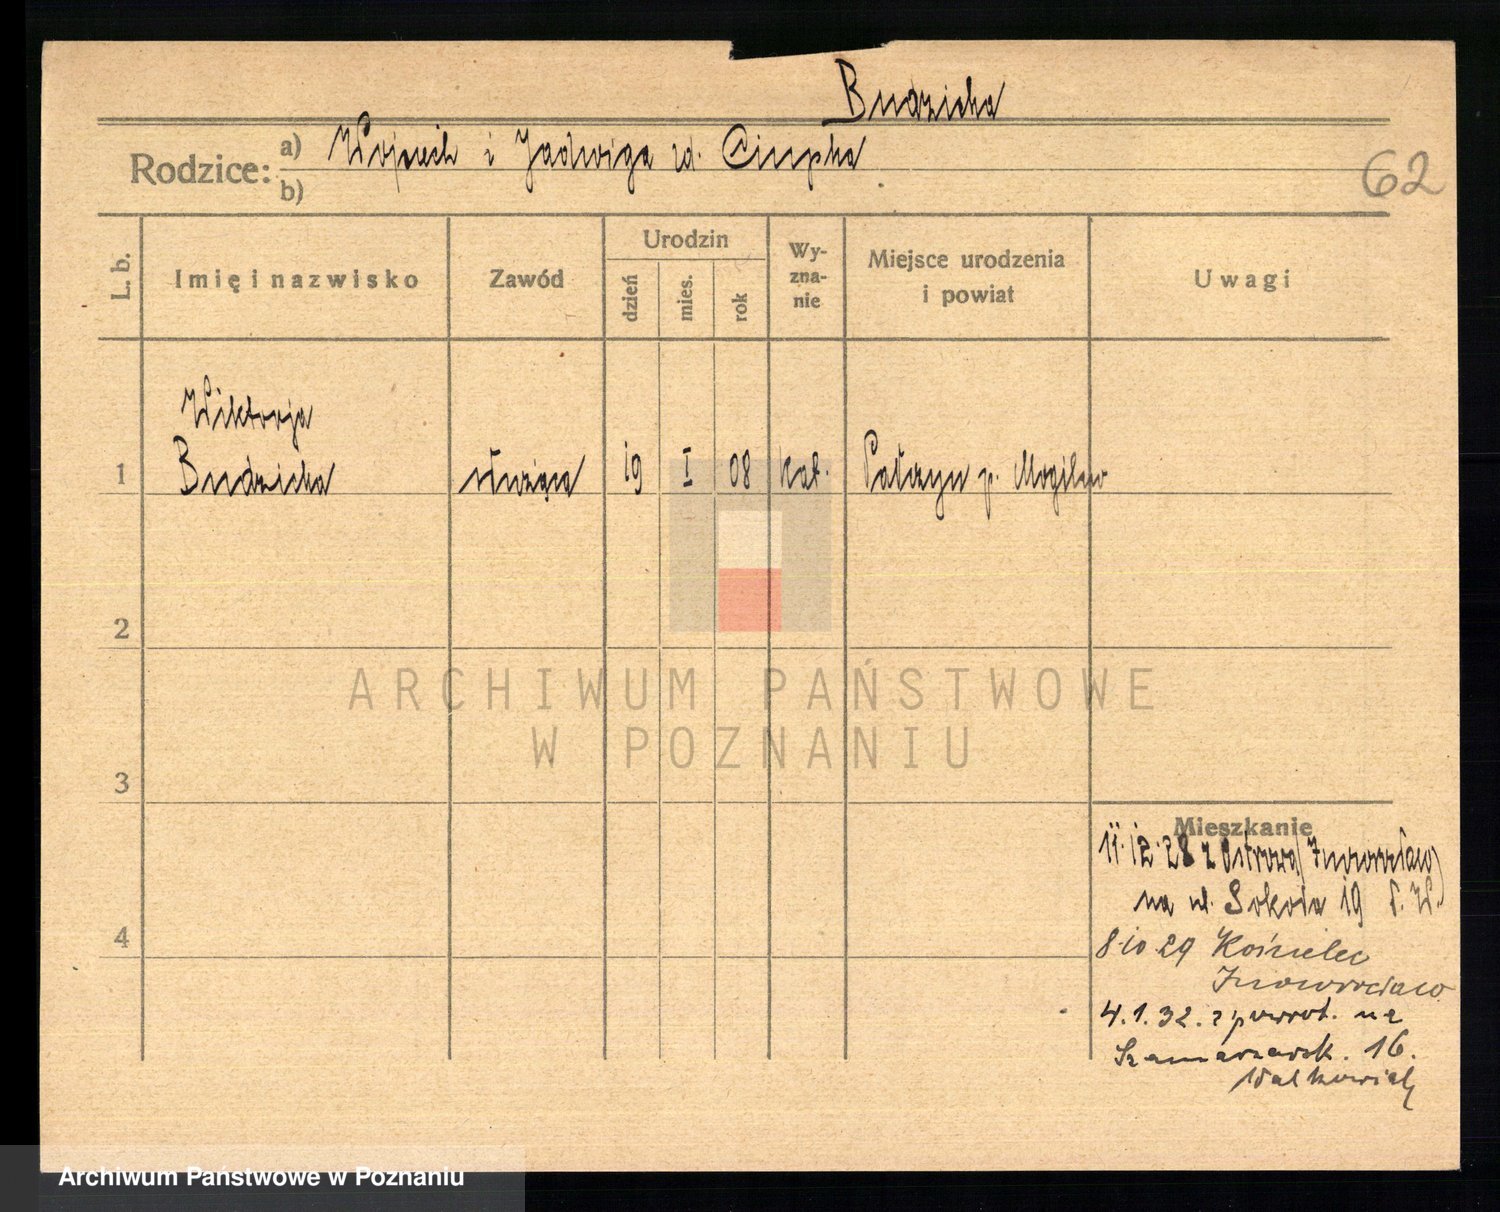 Budzicka
Rodzice: a) Wojciech i Jadwiga zd. Ciupka
b)
62
L. b. Imię i nazwisko Zawód Urodzin dzień mies. rok Wy-zna-nie Miejsce urodzenia i powiat Uwagi
Wiktorja
1 Budzicka służąca 19 I 08 kat. Pałczyn p. Mogilno
2
ARCHIWUM PAŃSTWOWE
W POZNANIU
3
Mieszkanie
11.12.28 z Ostrowa (Inowrocław)
na ul. Sokoła 19
4
8.10.29 Kościelec
Inowrocław
4.1.32. z powrot. na
Szamarzewsk. 16.
Walkowiak
Archiwum Państwowe w Poznaniu